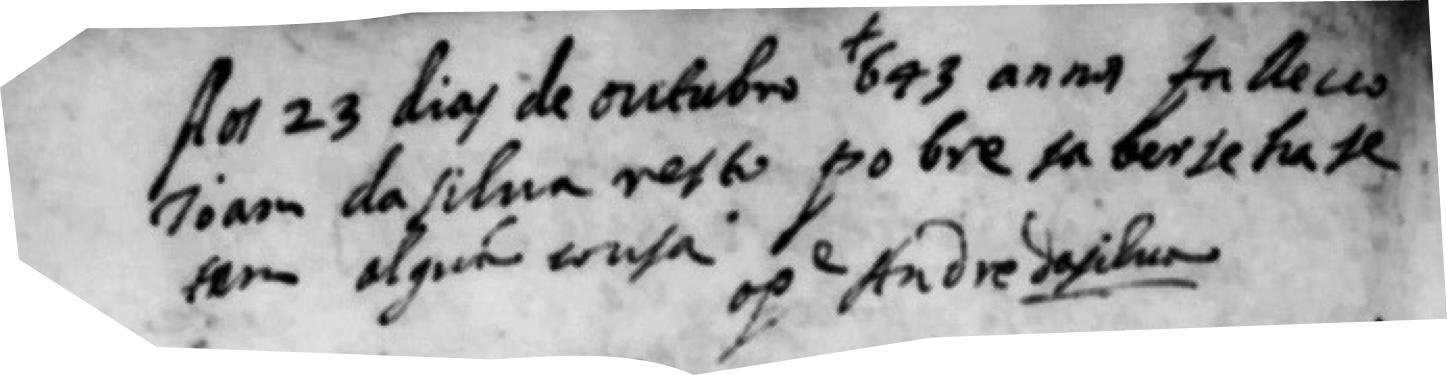 Aos 23 dias de outubro 1643 annos falleceo
Joam da silva pobre saberseha se
tem algũa cousa o pe Andre da silva